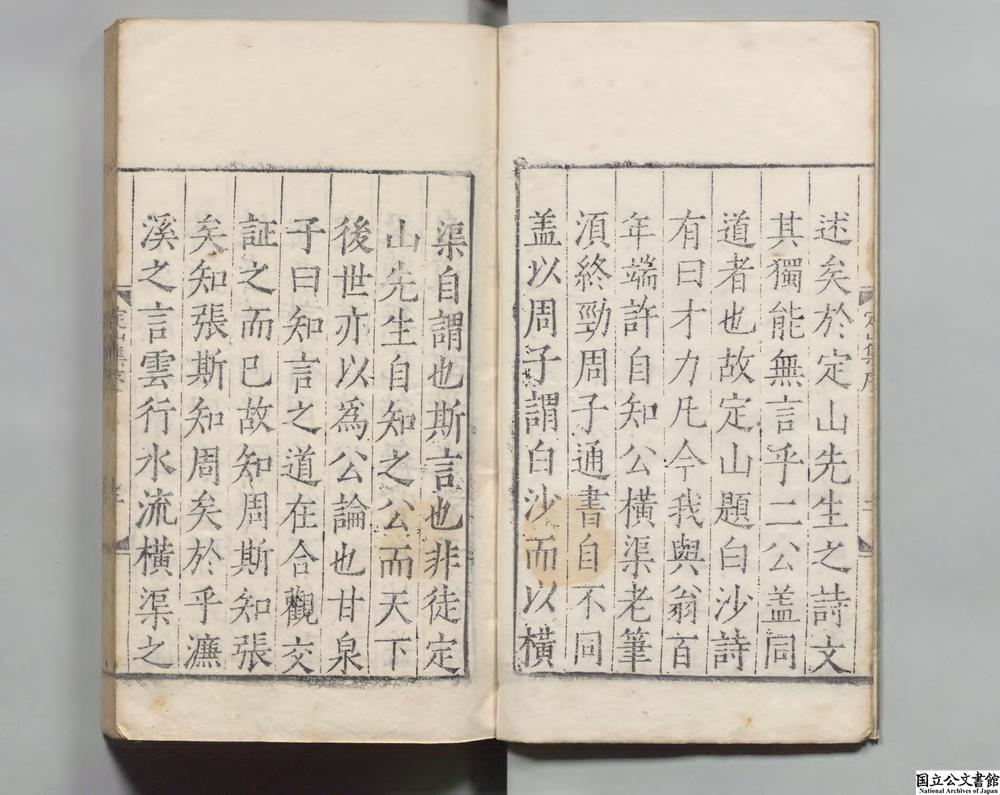 述矣於定山先生之詩文
其獨能無言乎二公盖同
道者也故定山題白沙詩
有曰才力凡今我與翁百
年端許自知公橫渠老筆
湏終勁周子通書自不同
盖以周子謂白沙而以橫
渠自謂也斯言也非徒定
山先生自知之公而天下
後世亦以爲公論也甘泉
子曰知言之道在合觀交
証之而已故知周斯知張
矣知張斯知周矣於乎濂
溪之言雲行水流橫渠之
定山集序
定山集序
国立公文書館
National Archives of Japan